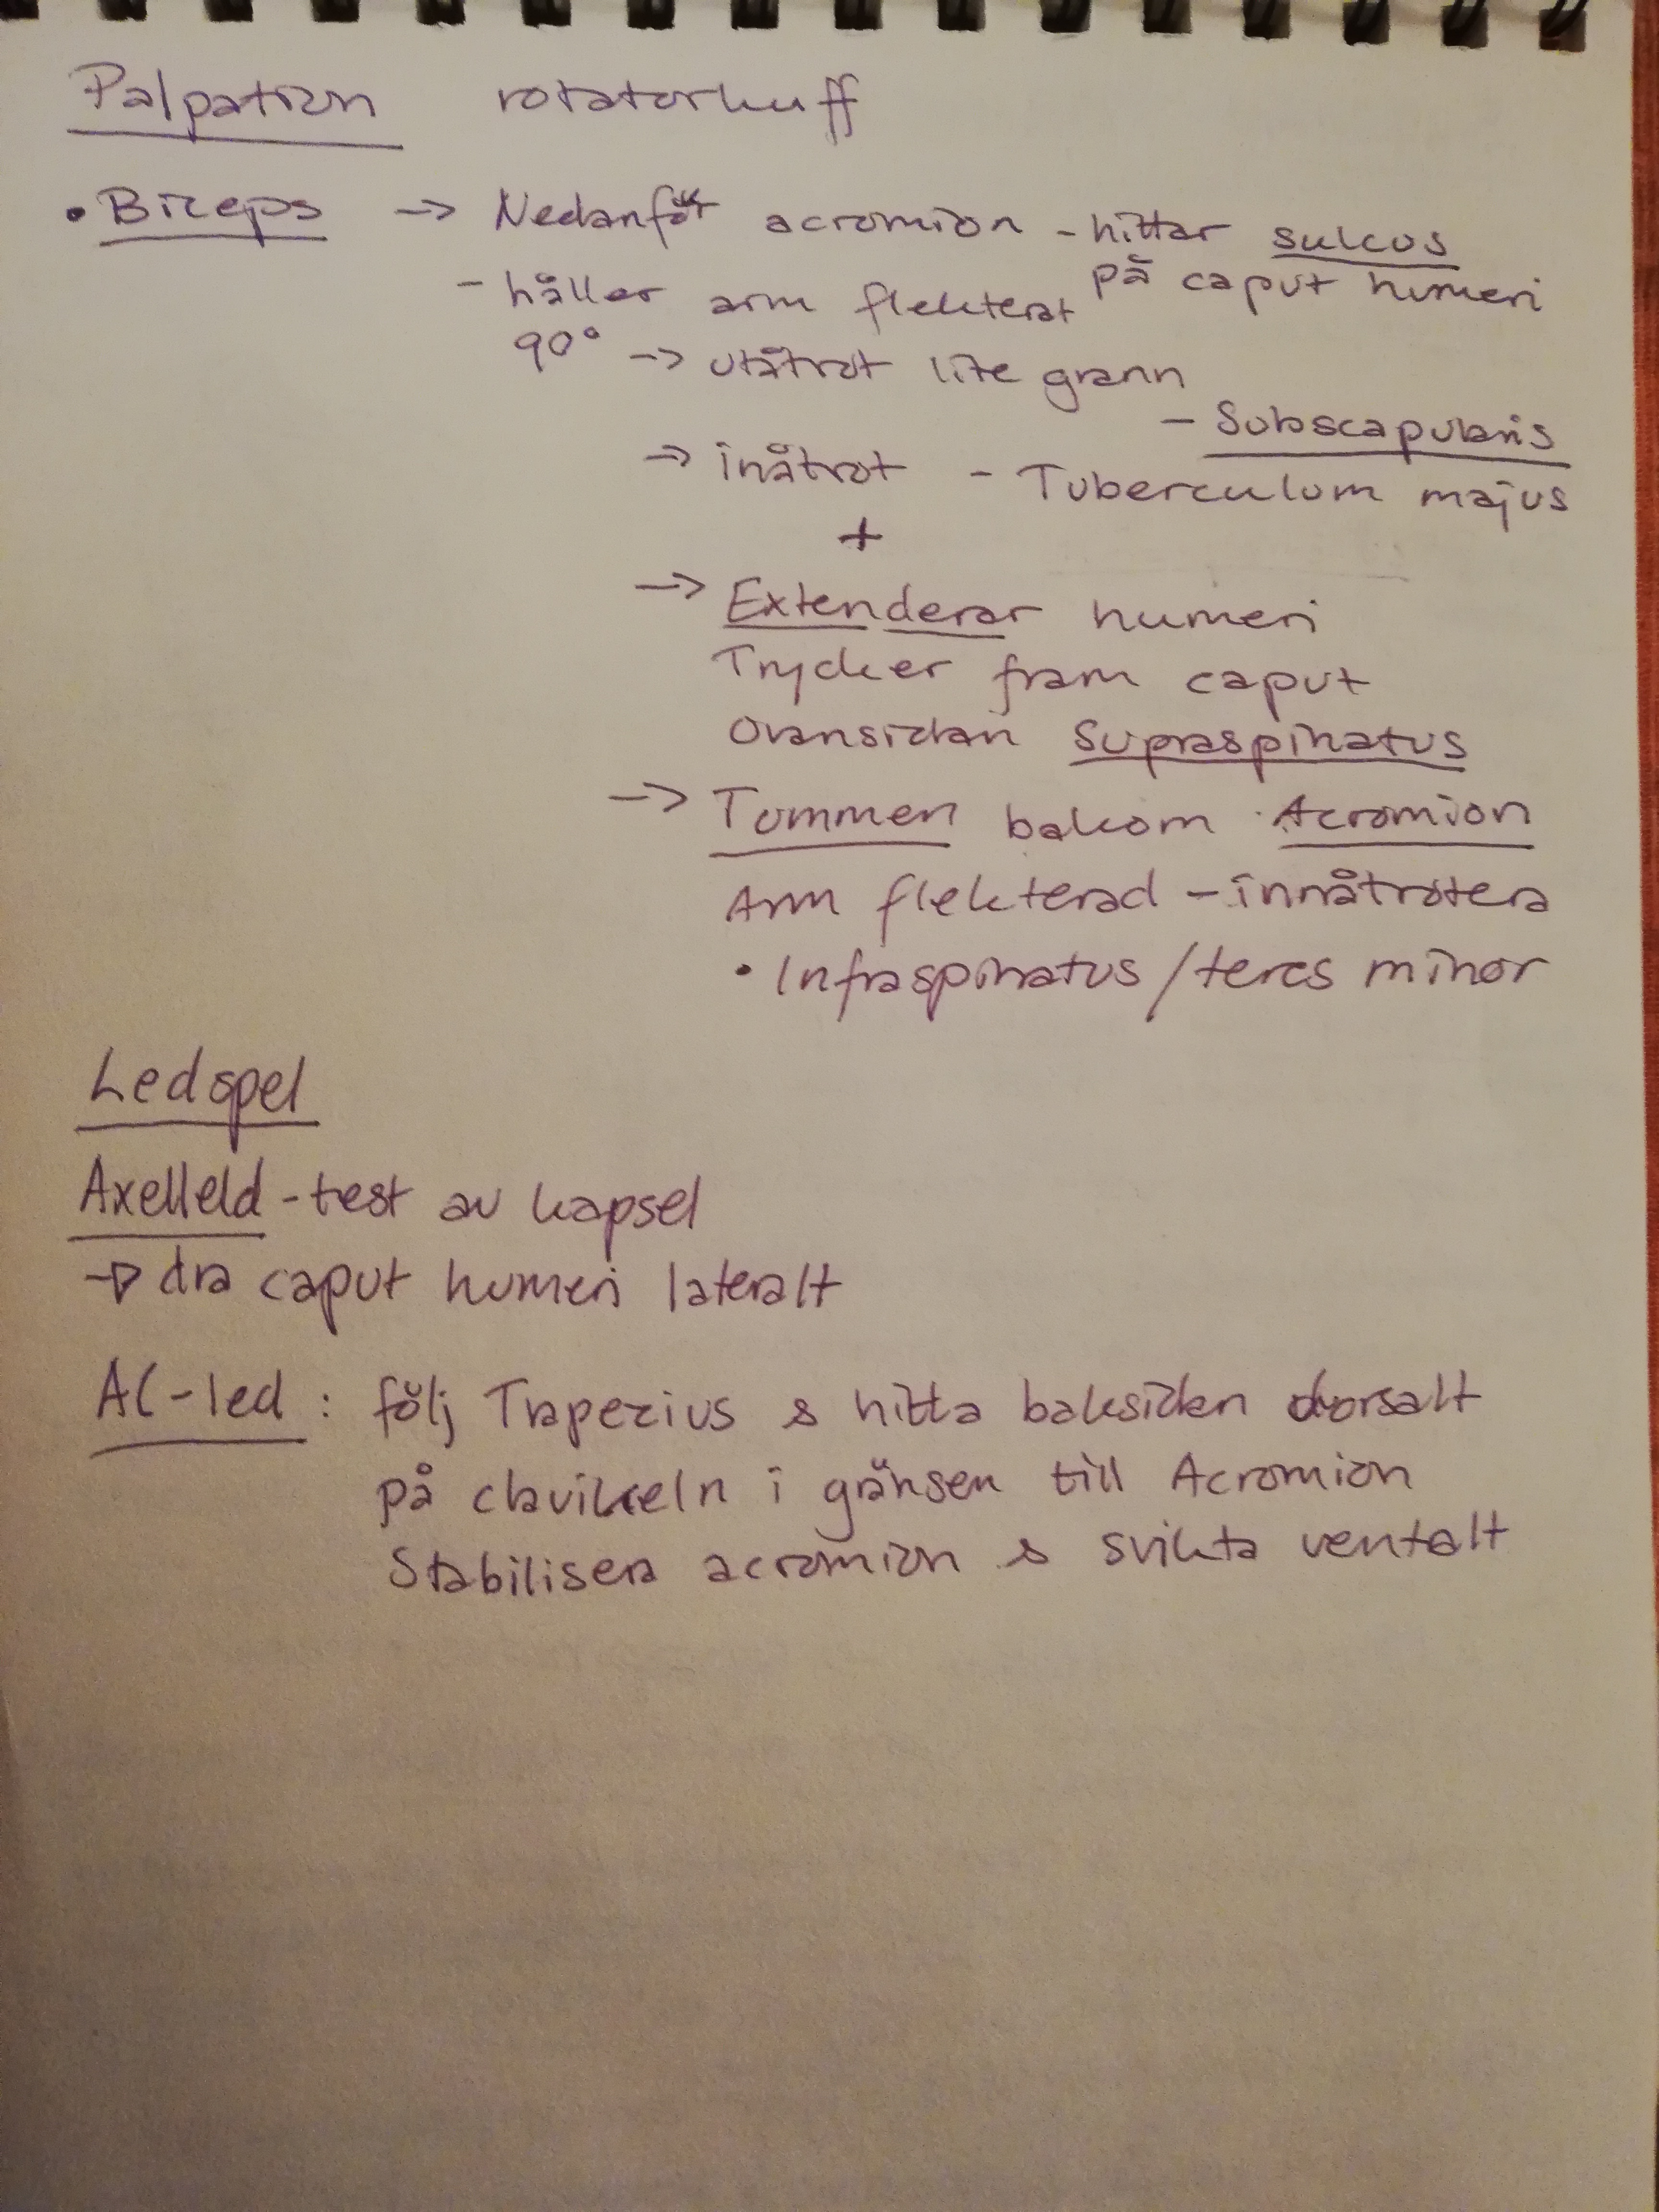 Palpation rotatorkuff
• Biceps -> Nedanför acromion - hittar sulcus
på caput humeri
- håller arm flekterat
90° -> utåtrot lite grann
- Subscapularis
-> inåtrot - Tuberculum majus
+
-> Extenderar humeri
Trycker fram caput
Ovansidan Supraspinatus
-> Tummen bakom Acromion
Arm flekterad - innåtrotera
• Infraspinatus/teres minor
Ledspel
Axelleld - test av kapsel
-> dra caput humeri lateralt
AC-led : följ Trapezius & hitta baksidan dorsalt
på clavikeln i gränsen till Acromion
Stabilisera acromion & svikta ventalt